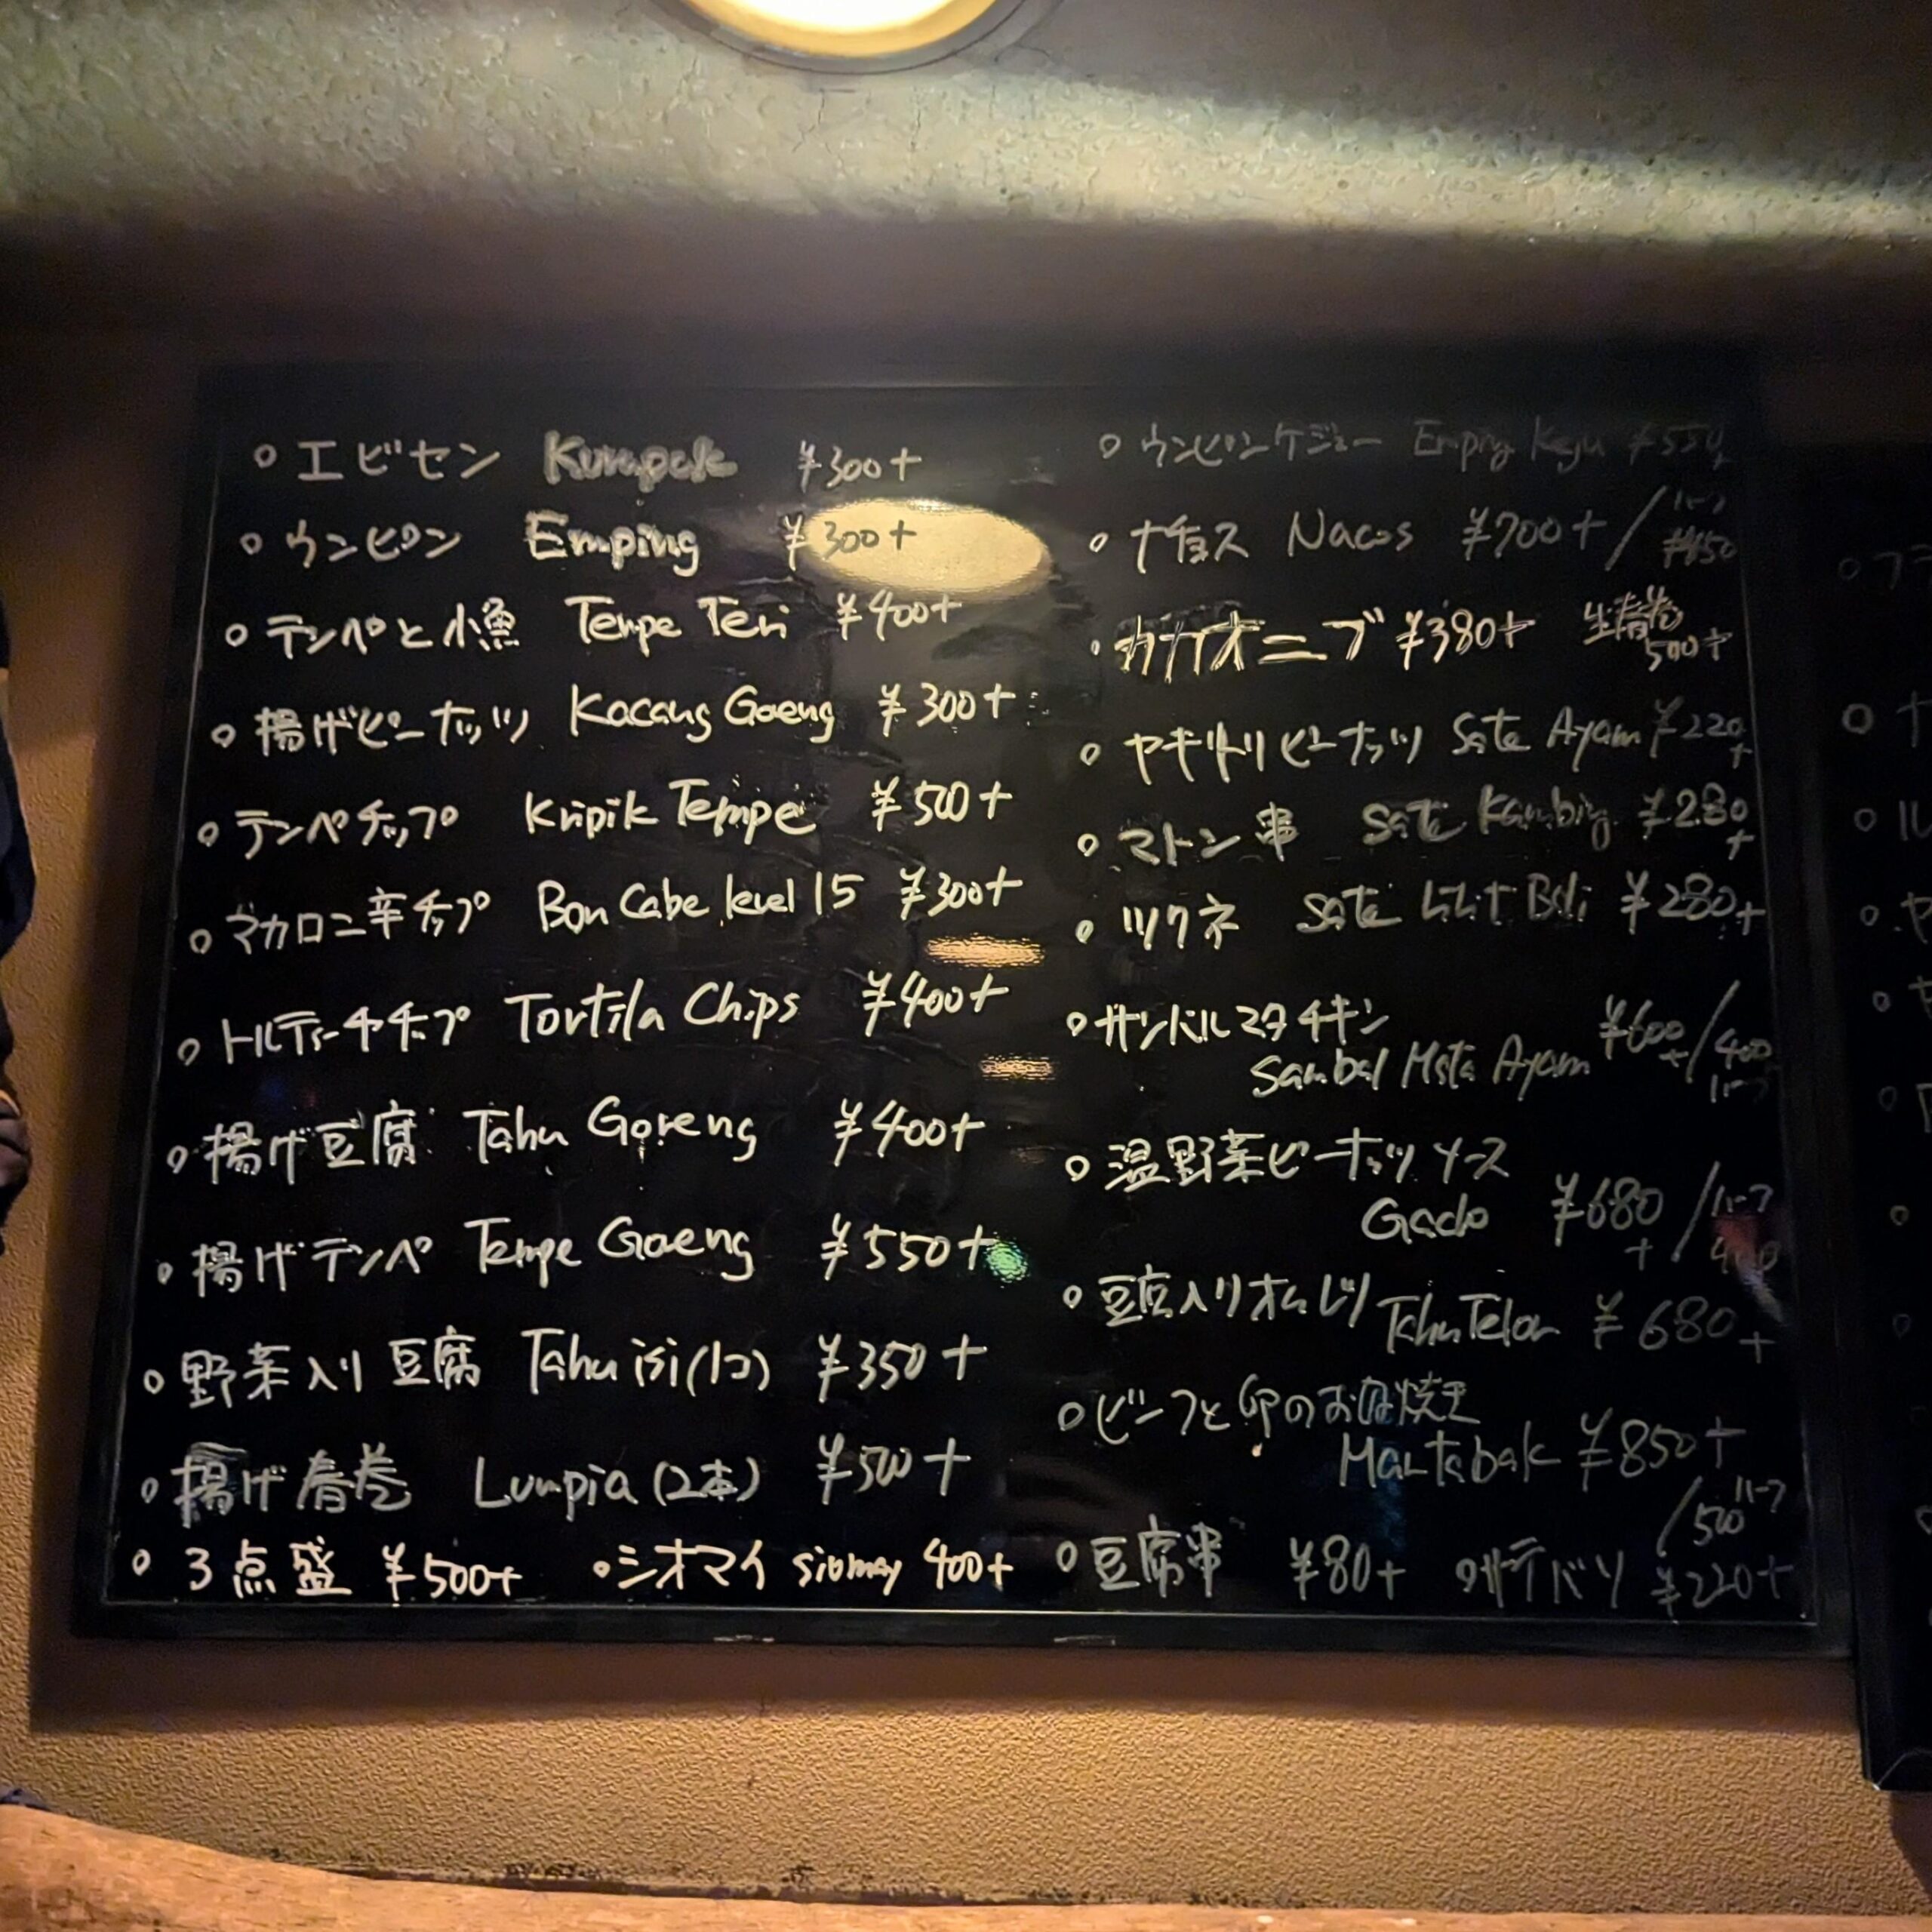 ○ エビセン Kurupuk ¥300+
○ ウンピン Emping ¥300+
○ テンペと小魚 Tempe Teri ¥400+
○ 揚げピーナッツ Kacang Goreng ¥300+
○ テンペチップ Kripik Tempe ¥500+
○ マカロニ辛チップ Bon Cabe level 15 ¥300+
○ トルティーヤチップ Tortila Chips ¥400+
○ 揚げ豆腐 Tahu Goreng ¥400+
○ 揚げテンペ Tempe Goreng ¥550+
○ 野菜入り豆腐 Tahu isi (1コ) ¥350+
○ 揚げ春巻 Lumpia (2本) ¥500+
○ 3点盛 ¥500+ ○シオマイ siomay 400+
○ ウンピンケジュー Emping Keju ¥550+
○ ナチョス Nacos ¥700+ / ハーフ ¥450
○ カカオニブ ¥380+ 生春巻 500+
○ ヤキトリピーナッツ Sate Ayam ¥220+
○ マトン串 Sate Kambing ¥280+
○ ツクネ Sate Lilit Bali ¥280+
○ サンバルマタチキン
Sambal Mata Ayam ¥600+ / 400 ハーフ
○ 温野菜ピーナッツソース
Gado ¥680+ / ハーフ
○ 豆腐入りオムレツ Tahu Telor ¥680+
○ ビーフと卵のお好焼き
Martabak ¥850+
/500 ハーフ
○ 豆腐串 ¥80+ ○サテバリ ¥220+